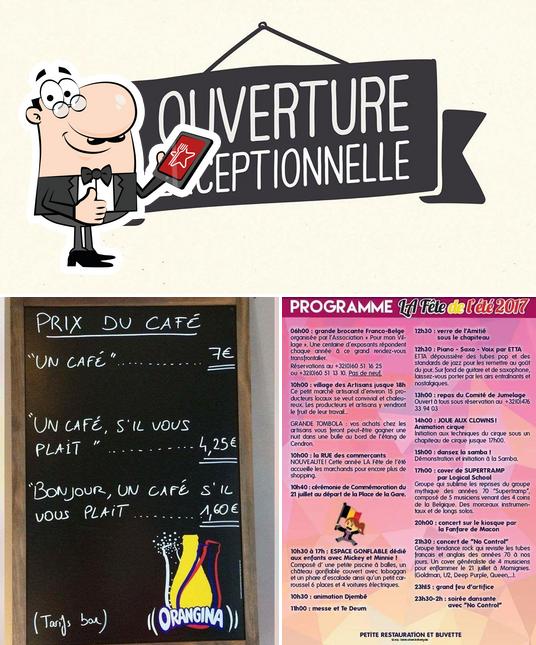 OUVERTURE
CEPTIONNELLE
PRIX DU CAFÉ
"UN CAFÉ".................. 7€
"UN CAFÉ, S'IL VOUS
PLAIT "............ 4,25€
"BONJOUR, UN CAFÉ S'IL
VOUS PLAIT......... 1,60€
(Tarifs bar)
ORANGINA
PROGRAMME LA Fête de l'été 2017
06h00 : grande brocante Franco-Belge
organisée par l'Association « Pour mon Vil-
lage ». Une centaine d'exposants répondent
chaque année à ce grand rendez-vous
transfrontalier.
Réservations au +32(0)60 51 16 25
ou +32(0)60 51 13 10. Pas de neuf.
10h00 : village des Artisans jusque 18h
Ce petit marché artisanal d'environ 15 pro-
ducteurs locaux se veut convivial et chaleu-
reux. Les producteurs et artisans y vendent
le fruit de leur travail...
GRANDE TOMBOLA : vos achats chez les
artisans vous feront peut-être gagner une
nuit dans une bulle au bord de l'étang de
Cendron.
10h00 : la RUE des commerçants
NOUVEAUTE! Cette année LA Fête de l'été
accueille les marchands pour encore plus de
shopping.
10h40 : cérémonie de Commémoration du
21 juillet au départ de la Place de la Gare.
10h30 à 17h : ESPACE GONFLABLE dédié
aux enfants avec Mickey et Minnie !
Composé d'une petite piscine à balles, un
château gonflable couvert avec toboggan
et un phare d'escalade ainsi qu'un petit car-
roussel 6 places et 4 voitures électriques.
10h30 : animation Djembé
11h00 : messe et Te Deum
12h30 : verre de l'Amitié
sous le chapiteau
12h30 : Piano - Saxo - Voix par ETTA
ETTA dépoussière des tubes pop et des
standards de jazz pour les remettre au goût
du jour. Sur fond de guitare et de saxophone,
laissez-vous porter par les airs entraînants et
nostalgiques.
13h00 : repas du Comité de Jumelage
Ouvert à tous sous réservation au +32(0)476
33 94 03
14h00 : JOUE AUX CLOWNS!
Animation cirque
Initiation aux techniques du cirque sous un
chapiteau de cirque jusque 17h00.
15h00 : dansez la samba !
Démonstration et initiation à la Samba.
17h00 : cover de SUPERTRAMP
par Logical School
Groupe qui sublime les reprises du groupe
mythique des années 70 "Supertramp",
composé de 5 musiciens venant des 4 coins
de la Belgique. Des morceaux instrumen-
taux et de longs solos.
20h00 : concert sur le kiosque par
la Fanfare de Macon
21h30 : concert de "No Control"
Groupe tendance rock qui revisite les tubes
français et anglais des années 70 à nos
jours. Un cover généraliste de 4 musiciens
pour enflammer le 21 juillet à Momignies.
(Goldman, U2, Deep Purple, Queen,...).
23h15 : grand feu d'artifice
23h30-2h : soirée dansante
avec "No Control"
PETITE RESTAURATION ET BUVETTE